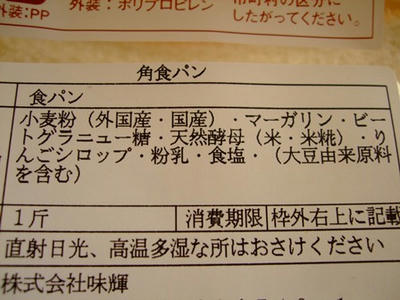 外装:PP
外装:ポリプロピレン
市町村の区分に
したがってください。
角食パン
食パン
小麦粉(外国産・国産)・マーガリン・ビー
トグラニュー糖・天然酵母(米・米糀)・り
んごシロップ・粉乳・食塩・(大豆由来原料
を含む)
1斤
消費期限
枠外右上に記載
直射日光、高温多湿な所はおさけください
株式会社味輝